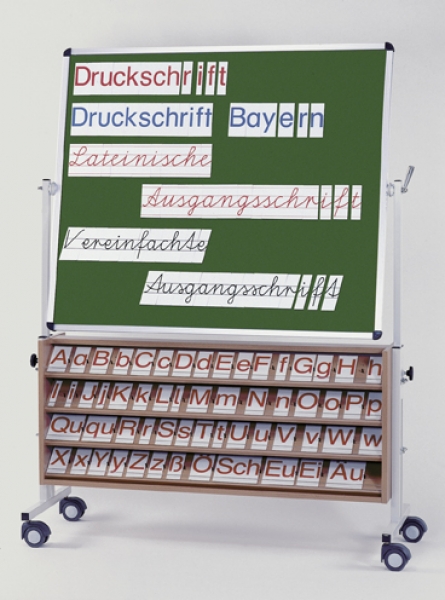 Druckschrift
Druckschrift Bayern
Lateinische
Ausgangsschrift
Vereinfachte
Ausgangsschrift
A a B b C c D d E e F f G g H h
I i J j K k L l M m N n O o P p
Qu qu R r S s T t U u V v W w
X x Y y Z z ß Ö Sch Eu Ei Äu